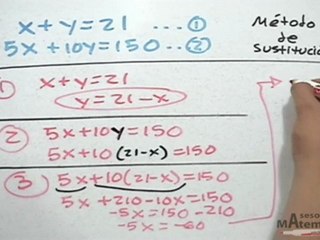 x+y=21 ... ①
5x+10y=150 ... ②
Método
de
sustitució
1
x+y=21
y=21-x
2
5x+10y=150
5x+10(21-x)=150
3
5x+10(21-x)=150
5x+210-10x=150
-5x=150-210
-5x=-60
Aseso
Matem